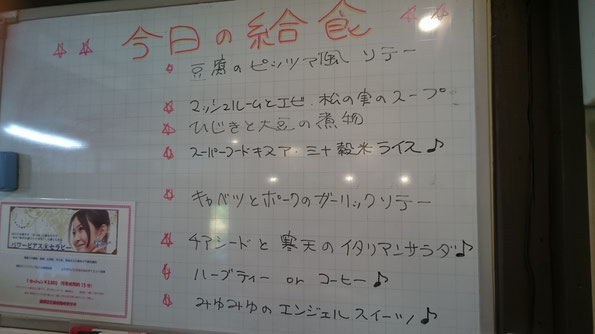 ☆ ☆ 今日の給食 ☆ ☆
☆ 豆腐のピッツァ風 ソテー
☆ マッシュルームとエビ・松の実のスープ
☆ ひじきと大豆の煮物
☆ スーパーフードキヌア・三十穀米ライス♪
☆ キャベツとポークのガーリックソテー
☆ チアシードと寒天のイタリアンサラダ♪
☆ ハーブティー or コーヒー♪
☆ みゆみゆのエンジェルスイーツ♪
パワーピアス★セラピー